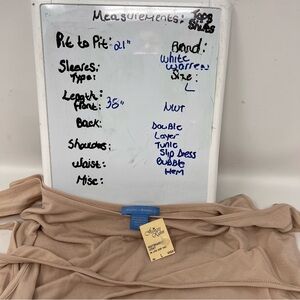 Measurements: Tops
Shirts
Pit to Pit: 21"
Brand:
White
Warren
Sleeves:
Type:
Size:
L
Length:
Front: 35"
NWT
Back:
Double
Layer
Tunic
Slip Dress
Bubble
Hem
Shoulders:
Waist:
Misc: